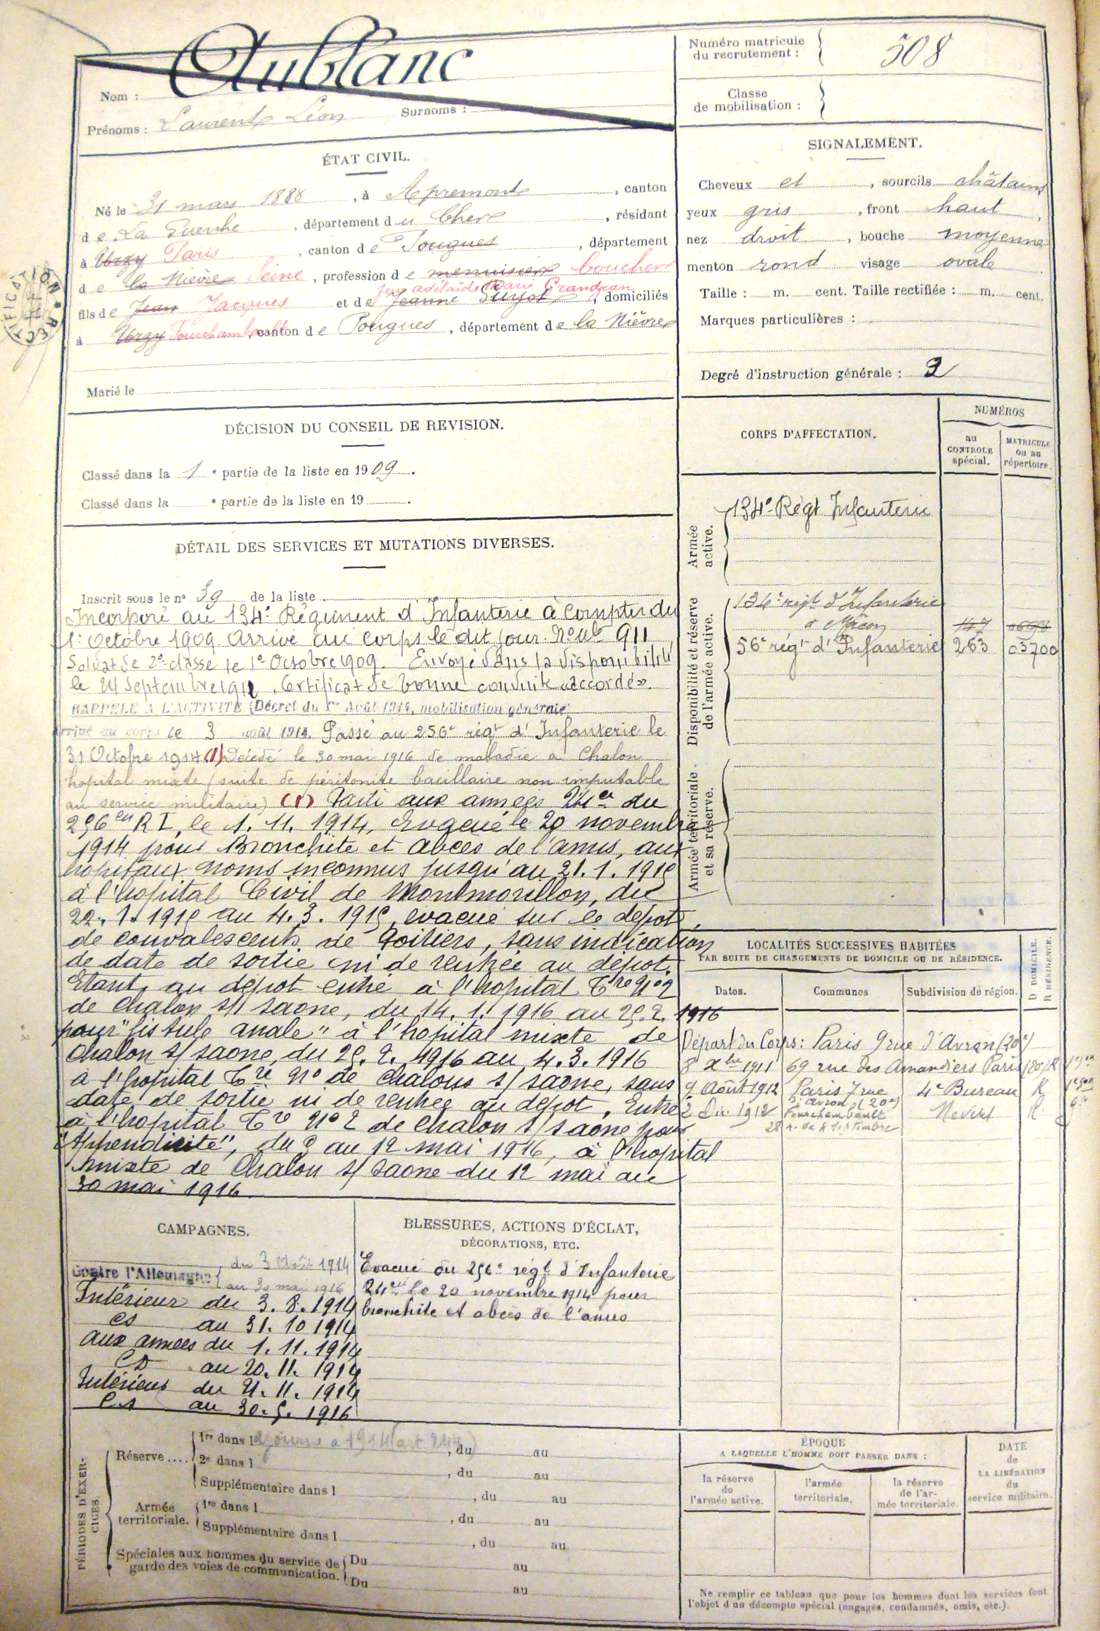 Nom : Aublanc
Prénoms : Laurent Léon Surnoms :
Numéro matricule du recrutement : 508
Classe de mobilisation :
ÉTAT CIVIL.
Né le 31 mars 1888, à Apremont, canton
de La Guerche, département du Cher, résidant
à Urzy Paris, canton de Pougues, département
de la Nièvre Seine, profession de menuisier boucher
fils de Jean Jacques et de Jeanne Guyot Adelaïde Marie Grandjean, domiciliés
à Urzy Fourchambault, canton de Pougues, département de la Nièvre
Marié le
RECTIFICATION
SIGNALEMENT.
Cheveux et, sourcils châtains
yeux gris, front haut,
nez droit, bouche moyenne
menton rond visage ovale
Taille : m. cent. Taille rectifiée : m. cent.
Marques particulières :
Degré d'instruction générale : 3
DÉCISION DU CONSEIL DE REVISION.
Classé dans la 1e partie de la liste en 1909.
Classé dans la e partie de la liste en 19 .
CORPS D'AFFECTATION.
NUMÉROS
au CONTROLE spécial.
MATRICULE ou au répertoire.
Armée active.
134e Régt Infanterie
Disponibilité et réserve de l'armée active.
134e régt d'Infanterie
à Mâcon 147
56e régt d'Infanterie 263 03700
Armée territoriale et sa réserve.
DÉTAIL DES SERVICES ET MUTATIONS DIVERSES.
Inscrit sous le n° 39 de la liste
Incorporé au 134e Régiment d'Infanterie à compter du
1er Octobre 1909. Arrivé au corps le dit jour. No Mle 911
Soldat de 2e classe le 1er Octobre 1909. Envoyé dans la disponibilité
le 24 Septembre 1911. Certificat de bonne conduite "accordé".
RAPPELÉ A L'ACTIVITÉ (Décret du 1er Août 1914, mobilisation générale)
Arrivé au corps le 3 août 1914. Passé au 256e régt d'Infanterie le
31 Octobre 1914 (1) Décédé le 30 mai 1916 de maladie à Chalon
hôpital mixte (suite de péritonite bacillaire non imputable
au service militaire) (1) Parti aux armées 24e Cie du
256eme RI, le 1.11.1914, Evacué le 20 novembre
1914 pour Bronchite et abcès de l'anus, aux
hopitaux noms inconnus jusqu'au 21.1.1915
à l'hopital Civil de Montmorillon, du
22.1.1915 au 4.3.1915, evacué sur le dépot
de convalescents de Poitiers, sans indication
de date de sortie ni de rentrée au dépot.
Etant au dépot entre à l'hopital Tre No 2
de chalon s/ saone, du 14.1.1916 au 25.2.1916
pour "fistule anale" à l'hopital mixte de
Chalon s/ saone, du 25.2.1916 au 4.3.1916
à l'hopital Tre No de chalons s/ saone, sans
date de sortie ni de rentrée au dépot, Entre
à l'hopital Tre No 2 de chalon s/ saone pour
"Appendicite", du 9 au 12 mai 1916, à l'hopital
mixte de Chalon s/ saone du 12 mai au
30 mai 1916
LOCALITÉS SUCCESSIVES HABITÉES
PAR SUITE DE CHANGEMENTS DE DOMICILE OU DE RÉSIDENCE.
Dates. Communes Subdivision de région. D DOMICILE. R RÉSIDENCE.
Départ du Corps : Paris 9 rue d'Avron (20e)
8 Xbre 1911 69 rue des Amandiers Paris (20e) R
9 Août 1912 Paris 7 rue d'Avron (20e) 4e Bureau R
2 Déc 1912 Fourchambault Nevers R
28 r. du 4 Septembre
CAMPAGNES.
Contre l'Allemagne du 3 Août 1914
au 30 mai 1916
Intérieur du 3.8.1914
cs au 31.10 1914
aux armées du 1.11.1914
CD au 20.11.1914
Intérieur du 21.11.1914
cs au 30.5.1916
BLESSURES, ACTIONS D'ÉCLAT,
DÉCORATIONS, ETC.
Evacué du 256e régt d'Infanterie
24e Cie le 20 novembre 1914 pour
bronchite et abcès de l'anus
PÉRIODES D'EXERCICES.
Réserve.... 1re dans l , du au
2e dans l , du au
Supplémentaire dans l , du au
Armée territoriale. 1re dans l , du au
Supplémentaire dans l , du au
Spéciales aux hommes du service de garde des voies de communication. Du au
Du au
ÉPOQUE
A LAQUELLE L'HOMME DOIT PASSER DANS :
la réserve de l'armée active.
l'armée territoriale.
la réserve de l'armée territoriale.
DATE de LA LIBÉRATION du service militaire.
Ne remplir ce tableau que pour les hommes dont les services font
l'objet d'un décompte spécial (engagés, condamnés, omis, etc.).